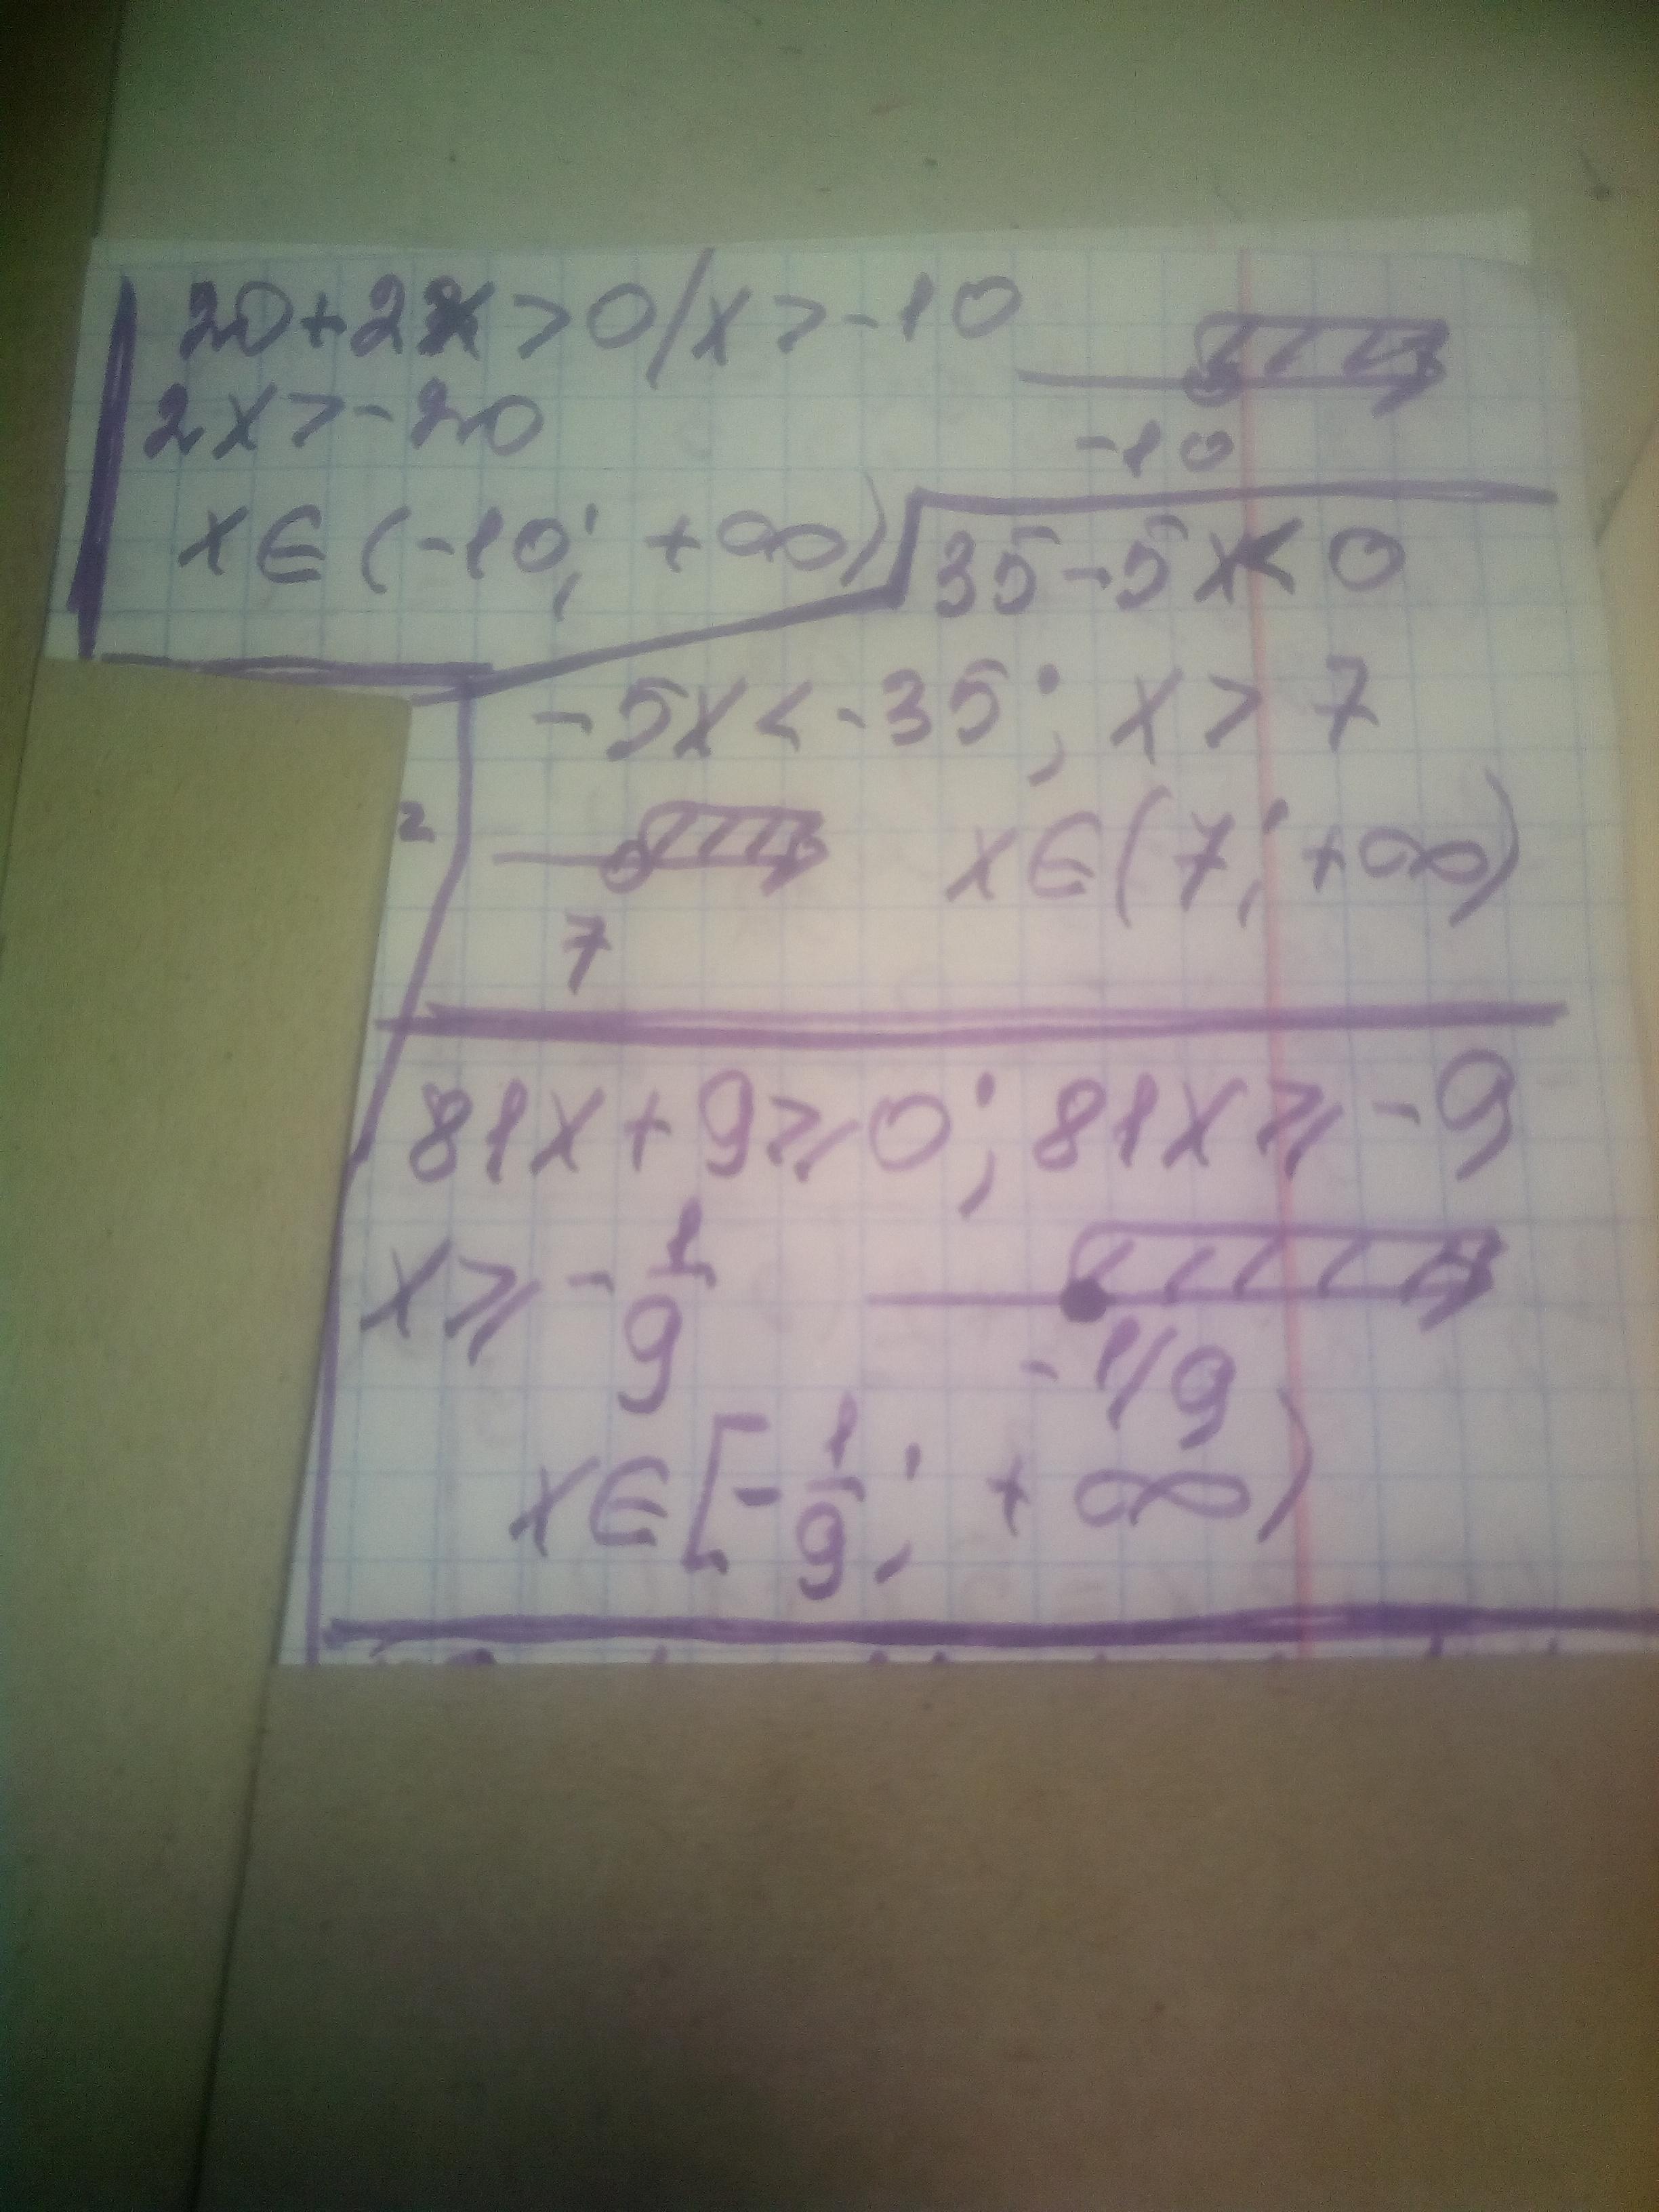 20+2x>0/x>-10
2x>-20
-10
x∈(-10; +∞)
35-5x<0
-5x<-35; x>7
2
x∈(7; +∞)
7
81x+9⩾0; 81x⩾-9
x⩾-1/9
-1/9
x∈[-1/9; +∞)